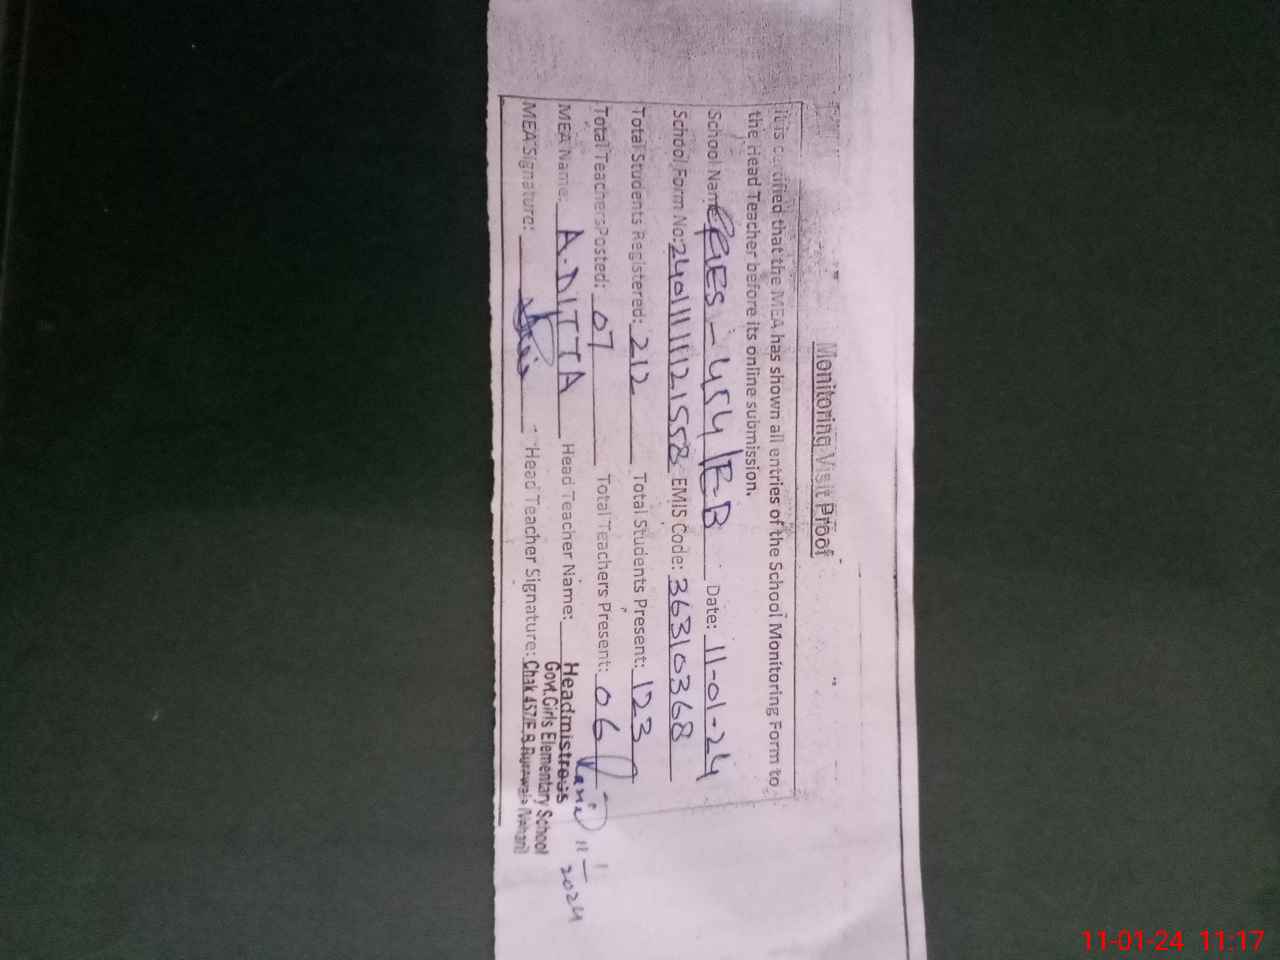 Monitoring Visit Proof
It is certified that the MEA has shown all entries of the School Monitoring Form to
the Head Teacher before its online submission.
School Name: GGES-454/E-B Date: 11-01-24
School Form No: 24011111121558 EMIS Code: 36310368
Total Students Registered: 212 Total Students Present: 123
Total Teachers Posted: 07 Total Teachers Present: 06
MEA Name: A.DITTA Head Teacher Name:
MEA Signature: Head Teacher Signature:
Headmistress
Govt.Girls Elementary School
Chak 457/E.B Burewala (Vehari)
2024
11-01-24 11:17